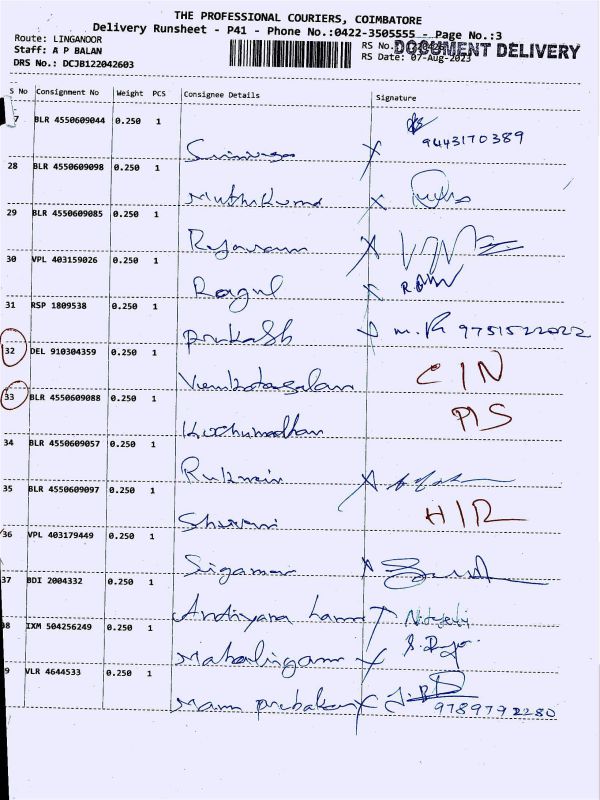 THE PROFESSIONAL COURIERS, COIMBATORE
Delivery Runsheet - P41 - Phone No.:0422-3505555 - Page No.:3
Route: LINGANOOR
Staff: A P BALAN
DRS No.: DCJB122042603
RS No.
DOCUMENT DELIVERY
RS Date: 07-Aug-2023
S No Consignment No Weight PCS Consignee Details Signature
7 BLR 4550609044 0.250 1
9443170389
Srinivasa
28 BLR 4550609098 0.250 1
Muthukumar
29 BLR 4550609085 0.250 1
Rajaram
30 VPL 403159026 0.250 1
Ragul
31 RSP 1809538 0.250 1
Prakash m.R 9751522022
32 DEL 910304359 0.250 1
Venkatasalam CIN
33 BLR 4550609088 0.250 1
PIS
34 BLR 4550609057 0.250 1
Rukmani
35 BLR 4550609097 0.250 1
HIR
36 VPL 403179449 0.250 1
Sigamani
37 BDI 2004332 0.250 1
38 IXM 504256249 0.250 1
Mahalingam
9 VLR 4644533 0.250 1
9789792280